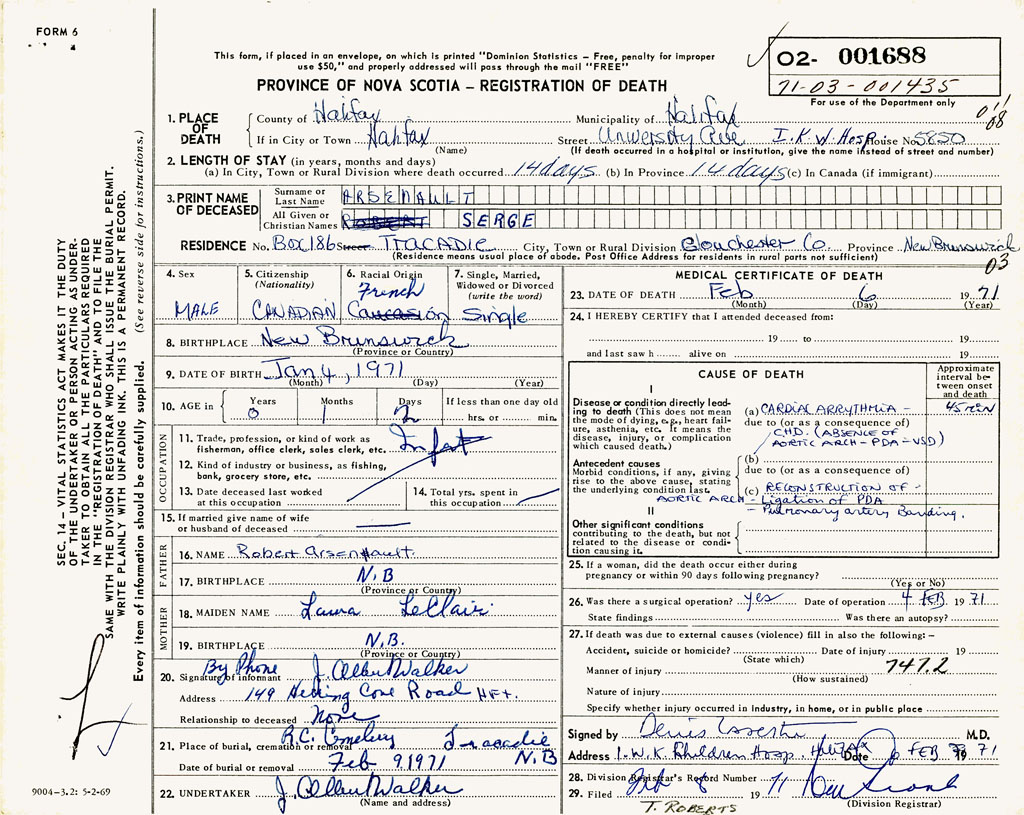 FORM 6
This form, if placed in an envelope, on which is printed "Dominion Statistics – Free, penalty for improper
use $50," and properly addressed will pass through the mail "FREE"
PROVINCE OF NOVA SCOTIA – REGISTRATION OF DEATH
02- 001688
71-03-001435
For use of the Department only
08
SEC. 14 – VITAL STATISTICS ACT MAKES IT THE DUTY
OF THE UNDERTAKER OR PERSON ACTING AS UNDER-
TAKER TO OBTAIN ALL THE PARTICULARS REQUIRED
IN THE "REGISTRATION OF DEATH" AND TO FILE THE
SAME WITH THE DIVISION REGISTRAR WHO SHALL ISSUE THE BURIAL PERMIT.
WRITE PLAINLY WITH UNFADING INK. THIS IS A PERMANENT RECORD.
Every item of information should be carefully supplied. (See reverse side for instructions.)
1. PLACE OF DEATH
County of Halifax Municipality of Halifax
If in City or Town Halifax Street University Ave I.K.W. Hosp House No 5850
(Name) (If death occurred in a hospital or institution, give the name instead of street and number)
2. LENGTH OF STAY (in years, months and days)
(a) In City, Town or Rural Division where death occurred 14 days (b) In Province 14 days (c) In Canada (if immigrant)
3. PRINT NAME OF DECEASED
Surname or Last Name ARSENAULT
All Given or Christian Names ROBERT SERGE
RESIDENCE No. BOX 186 Street TRACADIE City, Town or Rural Division Glouchester Co Province New Brunswick
(Residence means usual place of abode. Post Office Address for residents in rural parts not sufficient)
03
4. Sex
MALE
5. Citizenship (Nationality)
CANADIAN
6. Racial Origin
French
Caucasion
7. Single, Married, Widowed or Divorced (write the word)
Single
8. BIRTHPLACE New Brunswick
(Province or Country)
9. DATE OF BIRTH Jan 4, 1971
(Month) (Day) (Year)
10. AGE in Years 0 Months 1 Days 2 If less than one day old
hrs. or min.
OCCUPATION
11. Trade, profession, or kind of work as
fisherman, office clerk, sales clerk, etc. Infant
12. Kind of industry or business, as fishing,
bank, grocery store, etc.
13. Date deceased last worked
at this occupation
14. Total yrs. spent in
this occupation
15. If married give name of wife
or husband of deceased
FATHER
16. NAME Robert Arsenhault
17. BIRTHPLACE N.B
(Province or Country)
MOTHER
18. MAIDEN NAME Laura LeClair
19. BIRTHPLACE N.B.
(Province or Country)
By Phone
20. Signature of informant J. Albert Walker
Address 149 Herring Cove Road HFX.
Relationship to deceased None
21. Place of burial, cremation or removal R.C. Cemetery Tracadie N.B
Date of burial or removal Feb 9 1971
22. UNDERTAKER J. Albert Walker
(Name and address)
9004-3.2: 5-2-69
MEDICAL CERTIFICATE OF DEATH
23. DATE OF DEATH Feb 6 1971
(Month) (Day) (Year)
24. I HEREBY CERTIFY that I attended deceased from:
19 to 19
and last saw h alive on 19
CAUSE OF DEATH
Approximate interval between onset and death
I
Disease or condition directly lead-
ing to death (This does not mean
the mode of dying, e.g., heart fail-
ure, asthenia, etc. It means the
disease, injury, or complication
which caused death.)
(a) CARDIAC ARRYTHMIA – 45 MIN
due to (or as a consequence of)
CHD. (ABSENCE OF
AORTIC ARCH – PDA – VSD)
Antecedent causes
Morbid conditions, if any, giving
rise to the above cause, stating
the underlying condition last.
(b)
due to (or as a consequence of)
(c) RECONSTRUCTION OF –
AORTIC ARCH – Ligation of PDA
– Pulmonary artery Banding.
II
Other significant conditions
contributing to the death, but not
related to the disease or condi-
tion causing it.
25. If a woman, did the death occur either during
pregnancy or within 90 days following pregnancy?
(Yes or No)
26. Was there a surgical operation? yes Date of operation 4 FEB 1971
State findings Was there an autopsy?
27. If death was due to external causes (violence) fill in also the following: –
Accident, suicide or homicide? Date of injury 19
(State which)
Manner of injury 747.2
(How sustained)
Nature of injury
Specify whether injury occurred in industry, in home, or in public place
Signed by Denis M.D.
Address I.W.K Children Hosp. Halifax Date 6 FEB 19 71
28. Division Registrar's Record Number
29. Filed Feb 8 19 71
(Division Registrar)
T. ROBERTS